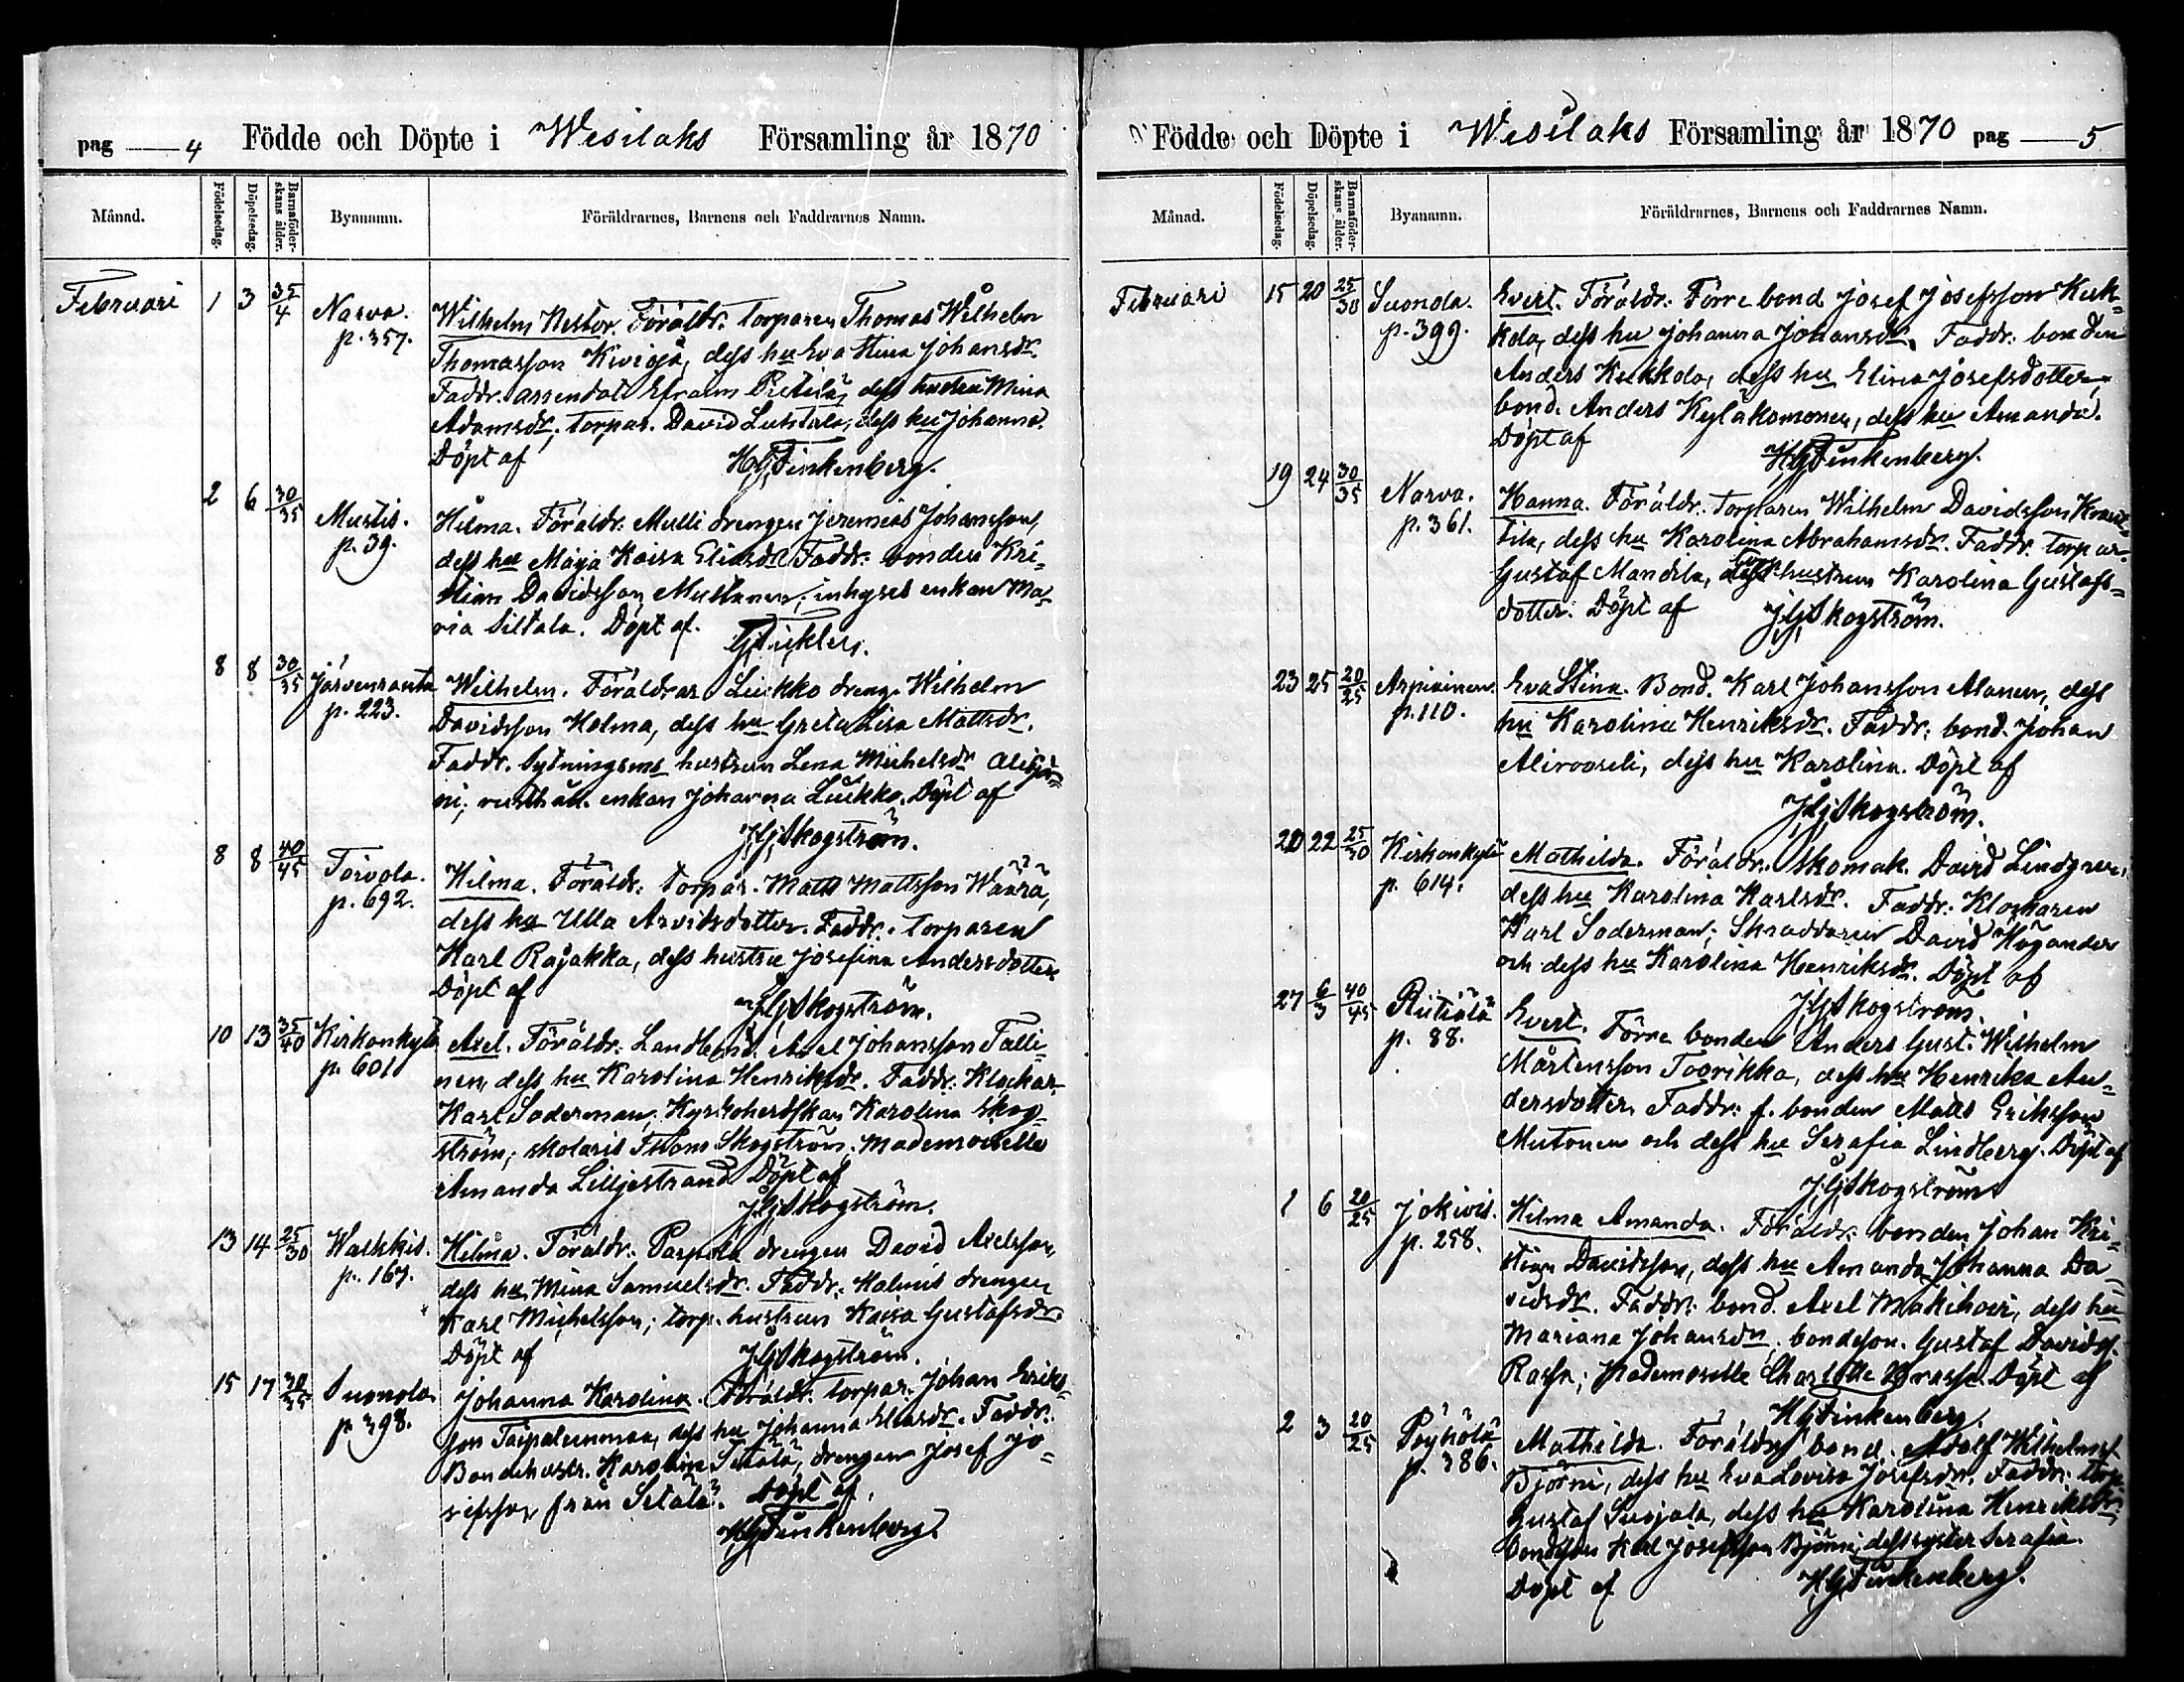 pag 4 Födde och Döpte i Wesilaks Församling år 1870
Månad. Födelsedag. Döpelsedag. Barnaföderskans ålder. Byanamn. Föräldrarnes, Barnens och Faddrarnes Namn.
Februari 1 3 35/4 Narva. Wilhelm Nestor. Föräldr. torparen Thomas Wilhelm
p. 357. Thomasson Kivioja, dess hu Eva Stina Johansdr.
Faddr. arrendat. Efraim Pietilä, dess hustru Mina
Adamsdr; torpar. David Luhtala, dess hu Johanna.
Döpt af HGFinkenberg.
2 6 30/35 Mustis. Hilma. Föräldr. Mulli drengen Jeremias Johansson,
p. 39. dess hu Maja Kaisa Eliasdr. Faddr: bonden Kri-
stian Davidsson Mustanen; inhyses enkan Ma-
ria Siltala. Döpt af.
8 8 30/35 Järvenranta Wilhelm. Föräldrar Liukko dreng. Wilhelm
p. 223. Davidsson Holma, dess hu Greta Lisa Mattsdr.
Faddr. sytningsms hustrun Lena Michelsdr
enkan Johanna Liukko. Döpt af
JGSkogström.
8 8 40/45 Toivola. Hilma. Föräldr: torpar. Matts Mattsson Waara,
p. 692. dess hu Ulla Arvidsdotter. Faddr: torparen
Karl Rajakka, dess hustru Josefina Andersdotter
Döpt af JGSkogström.
10 13 35/40 Kirkonkylä Axel. Föräldr: Landtbruk. Axel Johansson Talli-
p. 601 nen, dess hu Karolina Henriksdr. Faddr: Klockar.
Karl Soderman; Kyrkoherdskan Karolina Skog-
ström; skolaris Thom Skogström; Mademoiselle
Amanda Lilljestrand Döpt af
JGSkogström.
13 14 25/30 Walkkis. Hilma. Föräldr: Parpola drengen David Axelsson,
p. 167. dess hu Mina Samuelsdr. Faddr: Halmis drengen
Karl Michelsson; torp. hustrun Kaisa Gustafsdr.
Döpt af JGSkogström.
15 17 30/35 Suonola Johanna Karolina. Föräldr. torpar. Johan Eriks-
p. 398. son Taipaleenmaa, dess hu Johanna Eliasdr. Faddr:
Bondehustr. Karolina Setälä, drengen Josef Jo-
sefsson från Setälä. Döpt af,
HGFinkenberg.
Födde och Döpte i Wesilaks Församling år 1870 pag 5
Månad. Födelsedag. Döpelsedag. Barnaföderskans ålder. Byanamn. Föräldrarnes, Barnens och Faddrarnes Namn.
Februari 15 20 25/30 Suonola. Evert. Föräldr: Förre bond Josef Josefsson Kuk-
p. 399. kola, dess hu Johanna Johansdr. Faddr: bonden
Anders Kukkola, dess hu Elina Josefsdotter,
bond. Anders Kyläkomonen, dess hu Amanda.
Döpt af HGFinkenberg.
19 24 30/35 Narva. Hanna. Föräldr. Torparen Wilhelm Davidsson
p. 361. dess hu Karolina Abrahamsdr. Faddr. torpar.
Gustaf Mandila, hustrun Karolina Gustafs-
dotter. Döpt af JGSkogström.
23 25 20/25 Arpiainen. Eva Stina. Bond. Karl Johansson Alanen, dess
p. 110. hu Karolina Henriksdr. Faddr: bond. Johan
Alirooseli, dess hu Karolina. Döpt af
JGSkogström.
20 22 25/30 Kirkonkylä Mathilda. Föräldr. Skomak. David Lindgren,
p. 614. dess hu Karolina Karlsdr. Faddr: Klockaren
Karl Soderman; Skraddaren David Högander
och dess hu Karolina Henriksdr. Döpt af
JGSkogström.
27 6/3 40/45 Riitiälä Evert. Förre bonden Anders Gust. Wilhelm
p. 88. Mårtensson Toorikka, dess hu Henrika An-
dersdotter. Faddr: f. bonden Matts Eriksson
Mutonen och dess hu Serafia Lindberg. Döpt af
JGSkogström
1 6 20/25 Jokivis. Hilma Amanda. Föräldr: bonden Johan Kri-
p. 258. stian Davidsson, dess hu Amanda Johanna Da-
vidsdr. Faddr: bond. Axel Makihovi, dess hu
Mariana Johansdr, bondeson. Gustaf Davidss.
Rassa; Mademoselle Charlotte Döpt af
HGFinkenberg.
2 3 20/25 Pöyhölä Mathilda. Föräldr. bond. Adolf Wilhelmss.
p. 386. Björni, dess hu Eva Lovisa Josefsdr. Faddr: torp.
Gustaf Suojala, dess hu Karolina Henriksdr,
bondeson Karl Josefsson Björni, dess syster Serafia.
Döpt af HGFinkenberg.